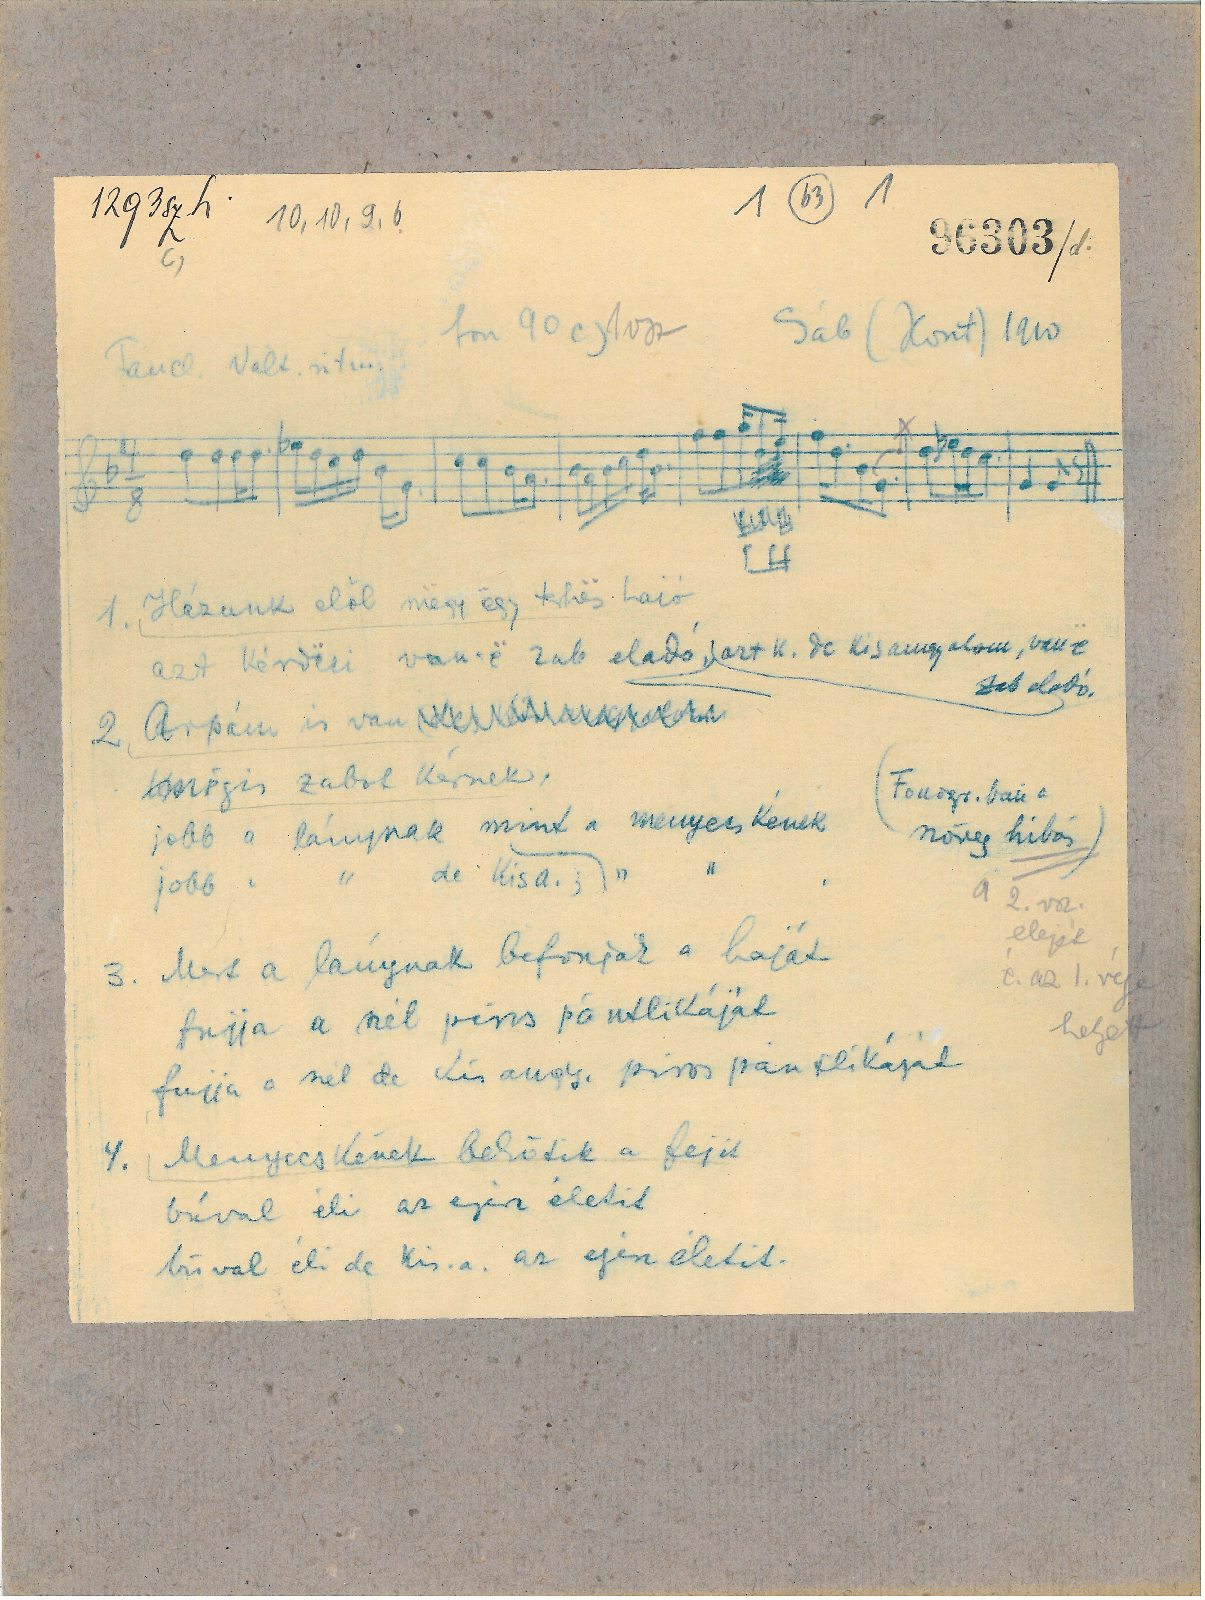 1293 sz h.
c,
10, 10, 9, 6
1 b3 1
96303/d.
fon 90 c) 1 vsz
Sáb (Hont) 1910
Tancl. Vált. ritm.
4
8
1. Házunk elől mëgy ëgy tërhës hajó
azt kérdëzi van-ë zab eladó; azt k. de kisangyalom, van-ë
zab eladó.
2. Árpám is van
mégis zabot kérnek.
jobb a lánynak mint a menyecskének
jobb " " de kis a. ; " "
(Fonogr. ban a
szöveg hibás)
a 2. vsz.
elejét
é. az 1. végé
helyett
3. Mert a lánynak befonják a haját
fujja a szél piros pántlikáját
fujja a szél de kis angy. piros pántlikáját
4. Menyecskének bekötik a fejit
búval éli az egész életit
búval éli de kis. a. az egész életit.